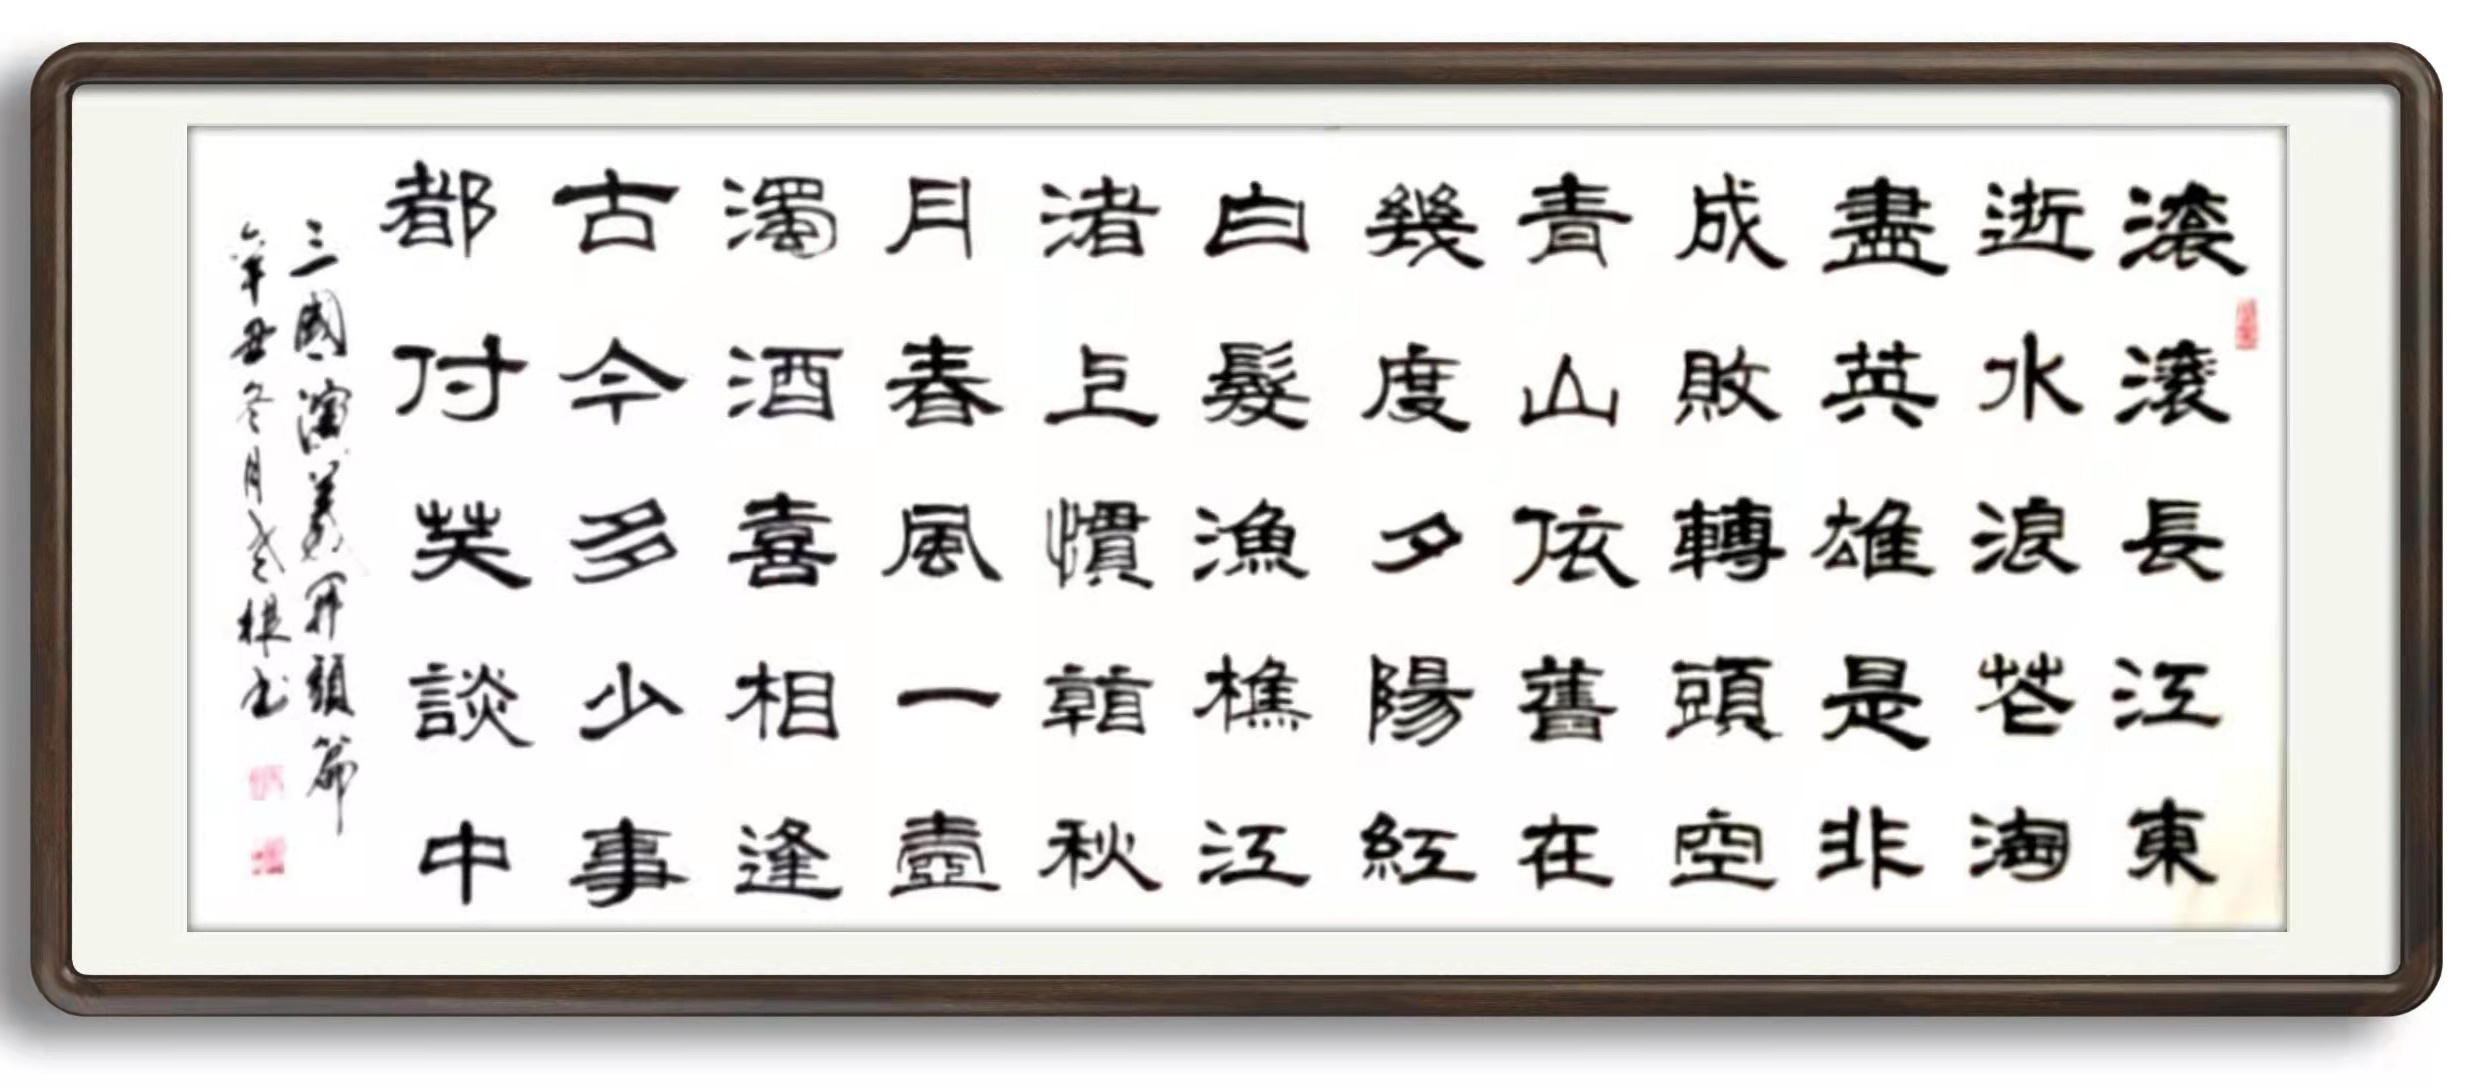 滚滚長江東
逝水浪花淘
盡英雄是非
成敗轉頭空
青山依舊在
幾度夕陽紅
白髮漁樵江
渚上慣韜秋
月春風一壼
濁酒喜相逢
古今多少事
都付笑談中
三國演義開頭篇
辛丑冬月
根書